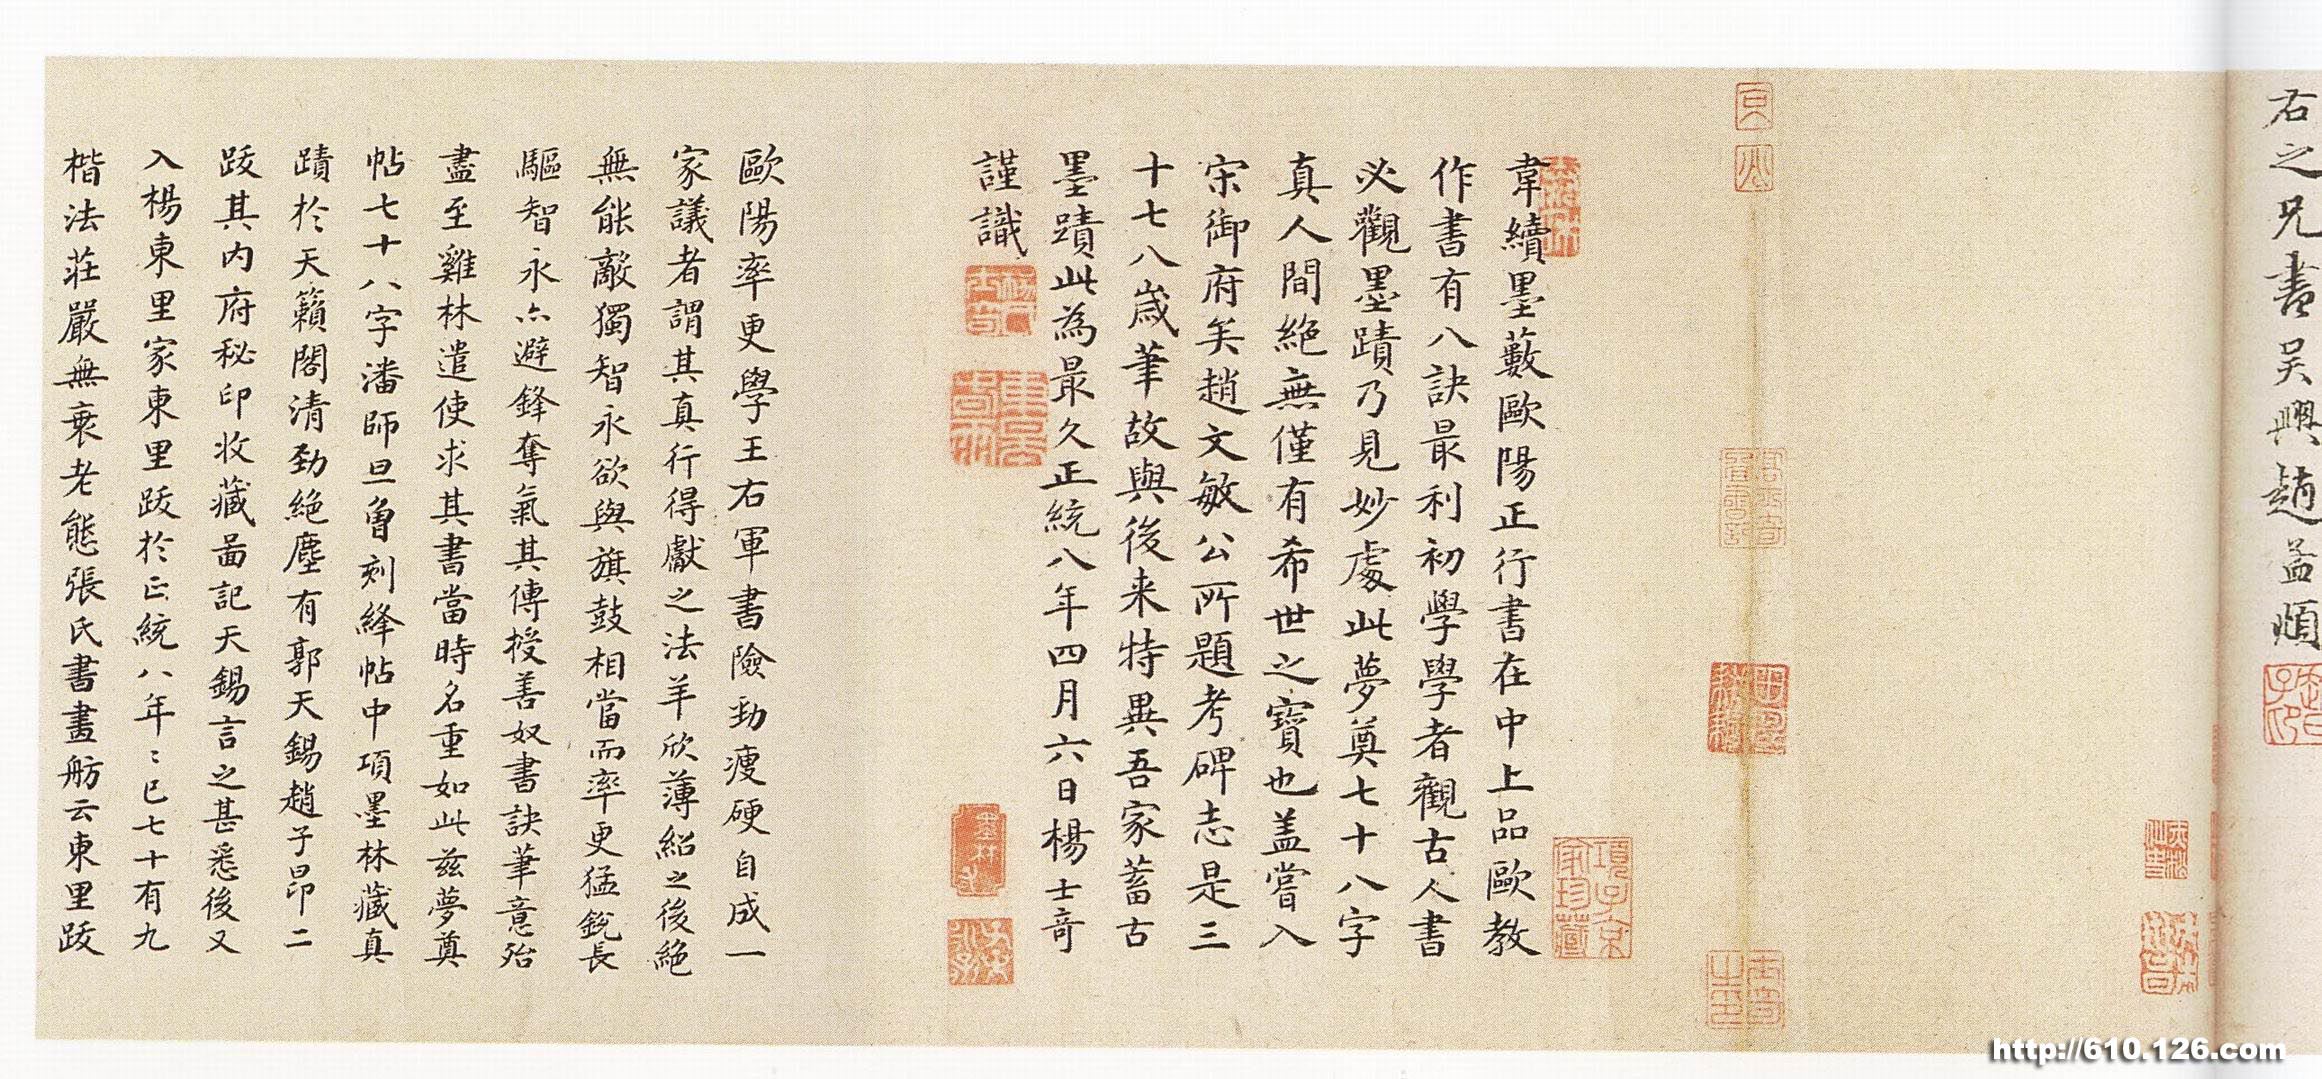 右之兄書吴興趙孟頫
韋續墨藪歐陽正行書在中上品歐教
作書有八訣最利初學學者觀古人書
必觀墨蹟乃見妙處此夢奠七十八字
真人間絶無僅有希世之寶也盖嘗入
宋御府矣趙文敏公所題考碑志是三
十七八歲筆故與後来特異吾家蓄古
墨蹟此為最久正統八年四月六日楊士竒
謹識
歐陽率更學王右軍書險勁瘦硬自成一
家議者謂其真行得獻之法羊欣薄紹之後絶
無能敵獨智永欲與旗鼓相當而率更猛鋭長
驅智永亦避鋒奪氣其傳授善奴書訣筆意殆
盡至雞林遣使求其書當時名重如此兹夢奠
帖七十八字潘師旦曾刻絳帖中項墨林藏真
蹟於天籟閣清勁絶塵有郭天錫趙子昂二
跋其内府秘印收藏啚記天錫言之甚悉後又
入楊東里家東里跋於正統八年〻已七十有九
楷法莊嚴無衰老態張氏書畫舫云東里跋
項子京家珍藏
http://610.126.com